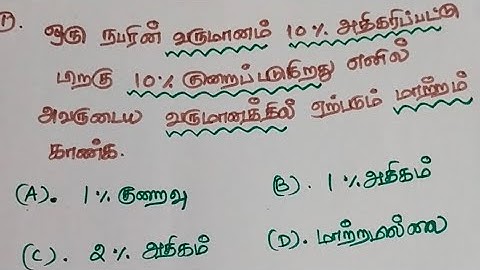 1). ஒரு நபரின் வருமானம் 10% அதிகரிப்பட்டு
பிறகு 10% குறைப்படுகிறது எனில்
அவருடைய வருமானத்தில் ஏற்படும் மாற்றம்
காண்க.
(A). 1% குறைவு (B). 1% அதிகம்
(C). 2% அதிகம் (D). மாற்றமில்லை